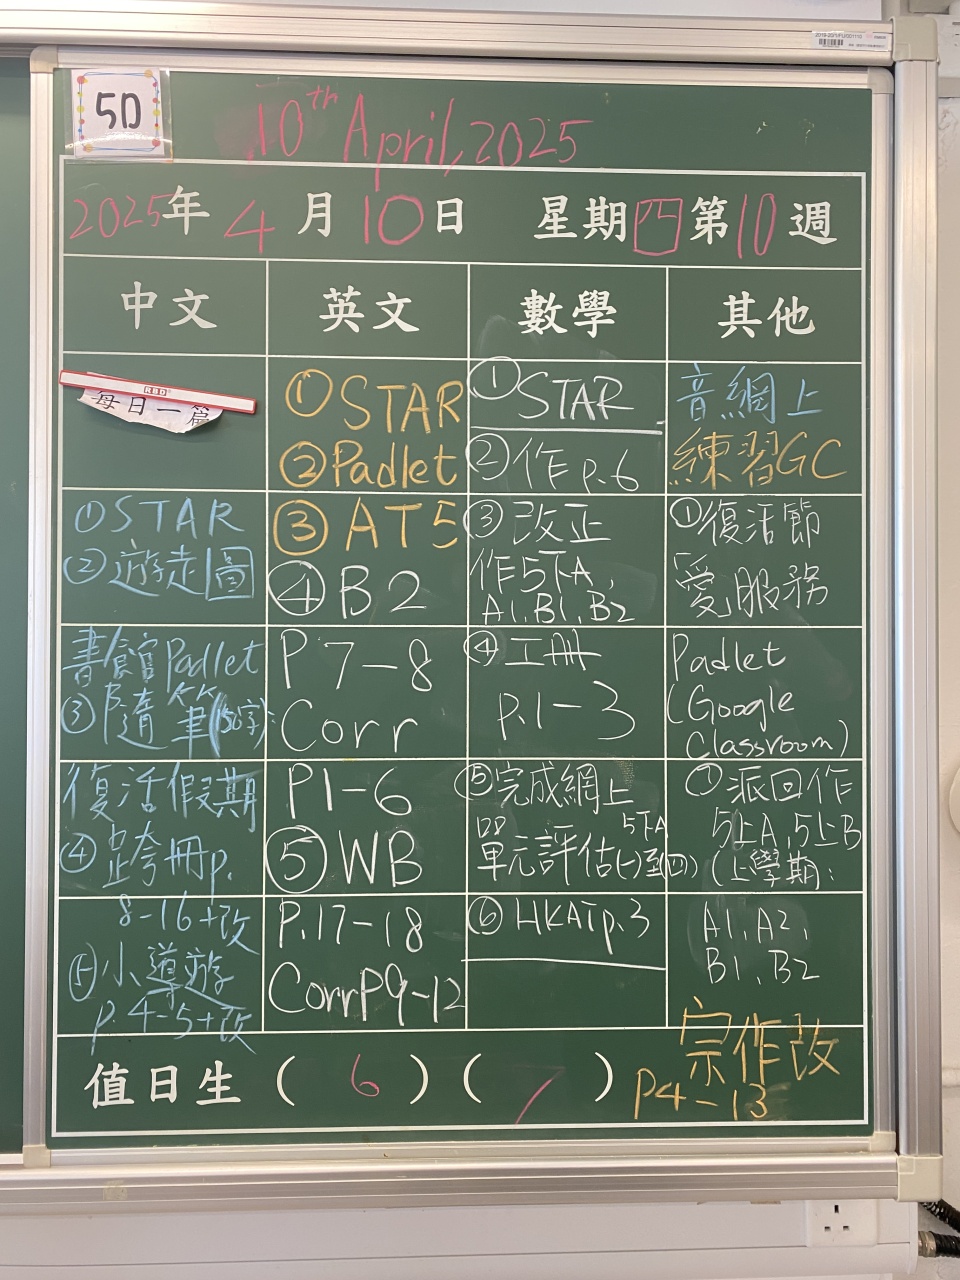 5D
10th April, 2025
2025年 4 月 10 日 星期四 第 10 週
中文
英文
數學
其他
RBD
每日一篇
①STAR
②遊走圖
書館Padlet
③隨筆(150字):
復活假期
④跨冊p.
8-16+改
⑤小導遊
p.4-5+改
①STAR
②Padlet
③AT5
④B2
P7-8
Corr
P1-6
⑤WB
P.17-18
CorrP9-12
①STAR
②作p.6
③改正
作5下A,
A1,B1,B2
④工冊
p.1-3
⑤完成網上
單元評估(一)至(四)
5下A
⑥HKAT p.3
音網上
練習GC
①復活節
愛服務
Padlet
(Google
Classroom)
派回作
5上A,5上B
(上學期:
A1,A2,
B1,B2
宗作改
P4-13
值日生 ( 6 ) ( 7 )